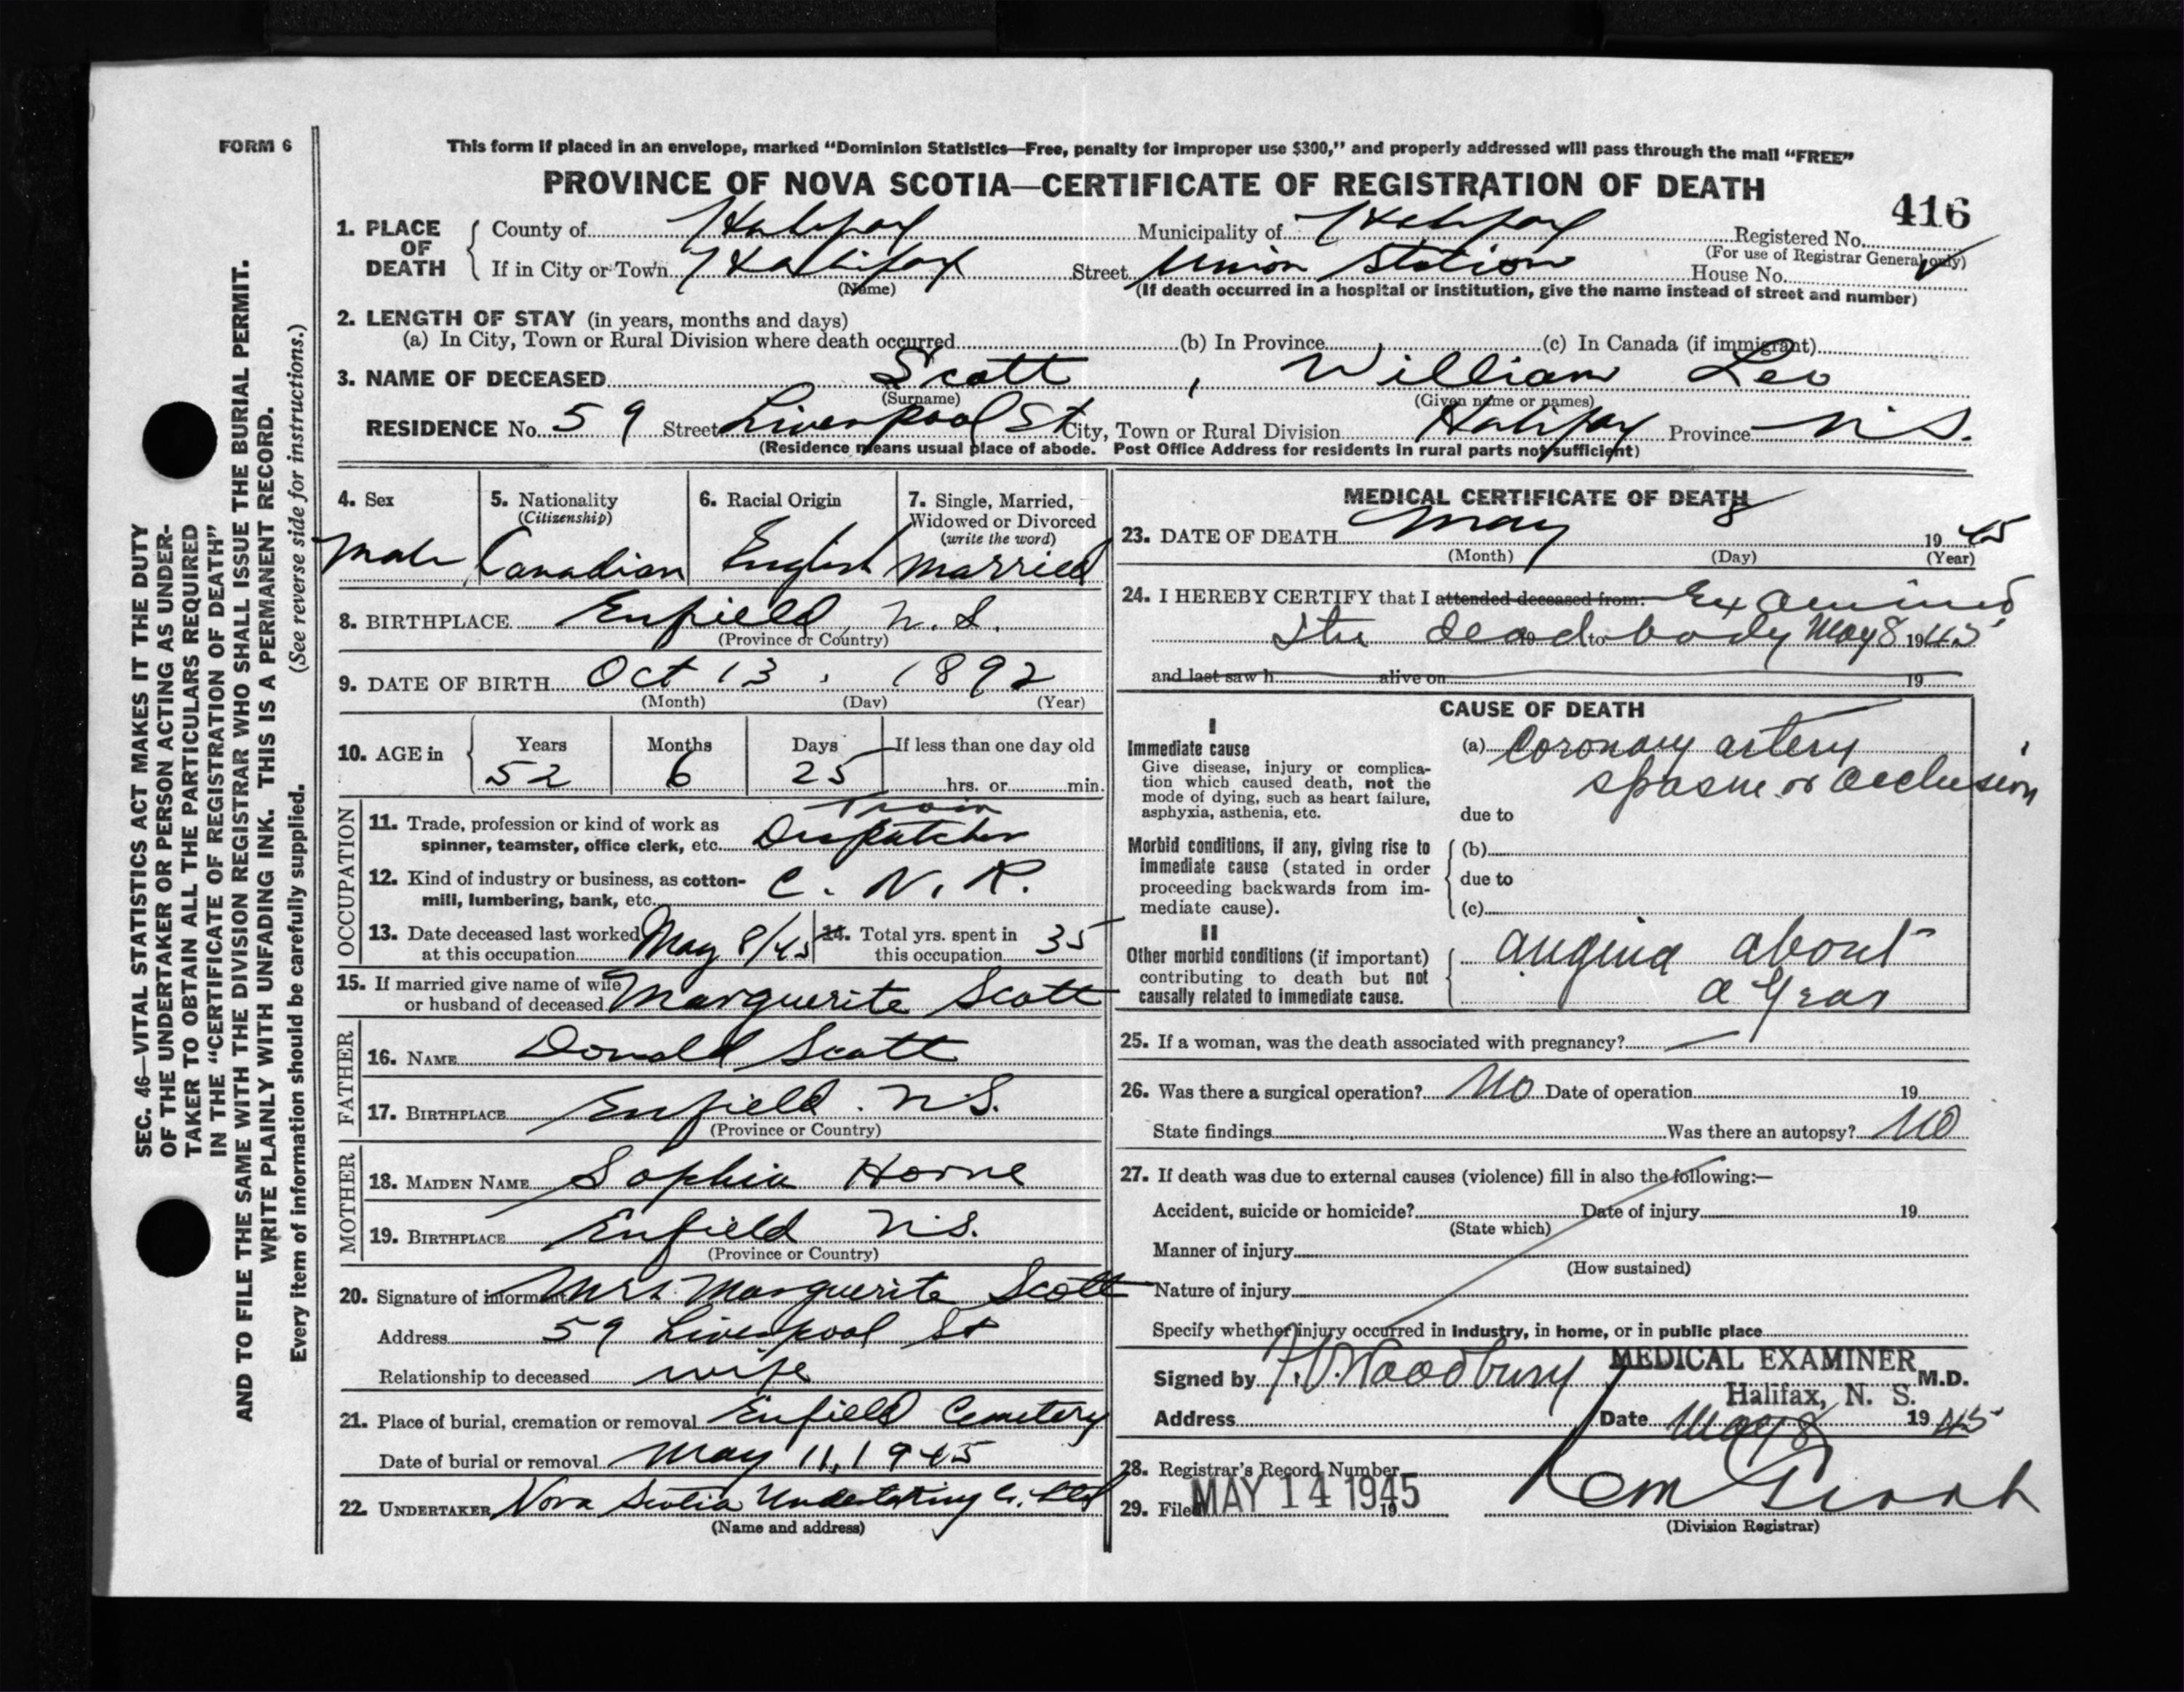 FORM 6
This form if placed in an envelope, marked “Dominion Statistics—Free, penalty for improper use $300,” and properly addressed will pass through the mail “FREE”
PROVINCE OF NOVA SCOTIA—CERTIFICATE OF REGISTRATION OF DEATH
416
1. PLACE OF DEATH
County of Halifax Municipality of Halifax Registered No.
(For use of Registrar General only)
If in City or Town Halifax Street Union Station House No.
(Name) (If death occurred in a hospital or institution, give the name instead of street and number)
2. LENGTH OF STAY (in years, months and days)
(a) In City, Town or Rural Division where death occurred (b) In Province (c) In Canada (if immigrant)
3. NAME OF DECEASED Scott, William Leo
(Surname) (Given name or names)
RESIDENCE No. 59 Street Liverpool St City, Town or Rural Division Halifax Province N.S.
(Residence means usual place of abode. Post Office Address for residents in rural parts not sufficient)
4. Sex
Male
5. Nationality
(Citizenship)
Canadian
6. Racial Origin
English
7. Single, Married,
Widowed or Divorced
(write the word)
Married
8. BIRTHPLACE Enfield, N.S.
(Province or Country)
9. DATE OF BIRTH Oct 13, 1892
(Month) (Day) (Year)
10. AGE in
Years Months Days If less than one day old
52 6 25 hrs. or min.
OCCUPATION
11. Trade, profession or kind of work as
spinner, teamster, office clerk, etc. Train Dispatcher
12. Kind of industry or business, as cotton-
mill, lumbering, bank, etc. C.N.R.
13. Date deceased last worked
at this occupation May 8/45
14. Total yrs. spent in
this occupation 35
15. If married give name of wife
or husband of deceased Marguerite Scott
FATHER
16. NAME Donald Scott
17. BIRTHPLACE Enfield. N.S.
(Province or Country)
MOTHER
18. MAIDEN NAME Sophia Horne
19. BIRTHPLACE Enfield N.S.
(Province or Country)
20. Signature of informant Mrs Marguerite Scott
Address 59 Liverpool St
Relationship to deceased wife
21. Place of burial, cremation or removal Enfield Cemetery
Date of burial or removal May 11, 1945
22. UNDERTAKER Nova Scotia Undertaking Co. Ltd
(Name and address)
MEDICAL CERTIFICATE OF DEATH
23. DATE OF DEATH May 8 1945
(Month) (Day) (Year)
24. I HEREBY CERTIFY that I attended deceased from: Examined
the dead body 19 to May 8 1945
and last saw h alive on 19
CAUSE OF DEATH
I
Immediate cause
Give disease, injury or complica-
tion which caused death, not the
mode of dying, such as heart failure,
asphyxia, asthenia, etc.
(a) Coronary artery
spasm or occlusion
due to
Morbid conditions, if any, giving rise to
immediate cause (stated in order
proceeding backwards from im-
mediate cause).
(b)
due to
(c)
II
Other morbid conditions (if important)
contributing to death but not
causally related to immediate cause.
angina about
a year
25. If a woman, was the death associated with pregnancy? —
26. Was there a surgical operation? No Date of operation 19
State findings Was there an autopsy? No
27. If death was due to external causes (violence) fill in also the following:—
Accident, suicide or homicide? Date of injury 19
(State which)
Manner of injury
(How sustained)
Nature of injury
Specify whether injury occurred in industry, in home, or in public place
Signed by Woodbury MEDICAL EXAMINER M.D.
Halifax, N. S.
Address Date May 8 1945
28. Registrar's Record Number
29. Filed MAY 14 1945 19
(Division Registrar)
SEC. 46—VITAL STATISTICS ACT MAKES IT THE DUTY
OF THE UNDERTAKER OR PERSON ACTING AS UNDER-
TAKER TO OBTAIN ALL THE PARTICULARS REQUIRED
IN THE “CERTIFICATE OF REGISTRATION OF DEATH”
AND TO FILE THE SAME WITH THE DIVISION REGISTRAR WHO SHALL ISSUE THE BURIAL PERMIT.
WRITE PLAINLY WITH UNFADING INK. THIS IS A PERMANENT RECORD.
Every item of information should be carefully supplied. (See reverse side for instructions.)